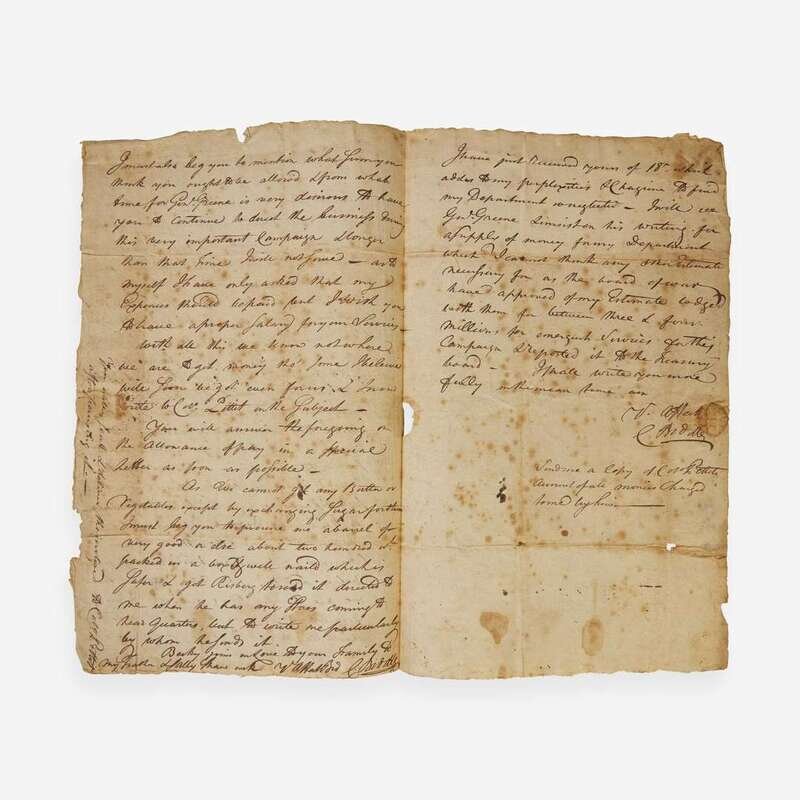 I must also beg you to mention what Sum you
think you ought to be allowed & from what
time for Genl. Greene is very desirous to have
you to Continue to direct the business during
this very important Campaign & longer
than that time I hope not some — as to
myself I have only asked that my
Expences should be paid but I wish you
to have a proper Salary for your Services —
With all this we know not where
we are to get money tho' some I believe
will soon be got each for us & I must
write to Coll. Pettit on the Subject —
You will answer the foregoing on
the Allowance of pay in a Special
letter as soon as possible —
As we cannot get any Butter or
Vegetables except by exchanging Sugar for them
I must beg you to procure me a barrel of
very good or else about two hundred wt
packed in a box well naild which is
safer & get Risberg to send it directed to
me when he has any Stores coming to
head Quarters, but to write me particularly
by whom he sends it.
Becky joins in Love to your Family to
my Father & Sally I have not Yr. Affect Bro C Biddle
I have just received yours of 18th which
adds to my perplexities & Chagrine to find
my Department so neglected — I will see
Genl. Greene & insist on his writing for
a Supply of money for my Department
which I cannot think any other Estimate
necessary for as the board of war
have approved of my Estimate lodged
with them for between three & four
Millions for emergent Services for this
Campaign & reported it to the Treasury
board — I shall write you more
fully in the mean time am
Yr. Affect
C Biddle
Send me a Copy of Coll. Pettits
Account of all monies Charged
to me by him —